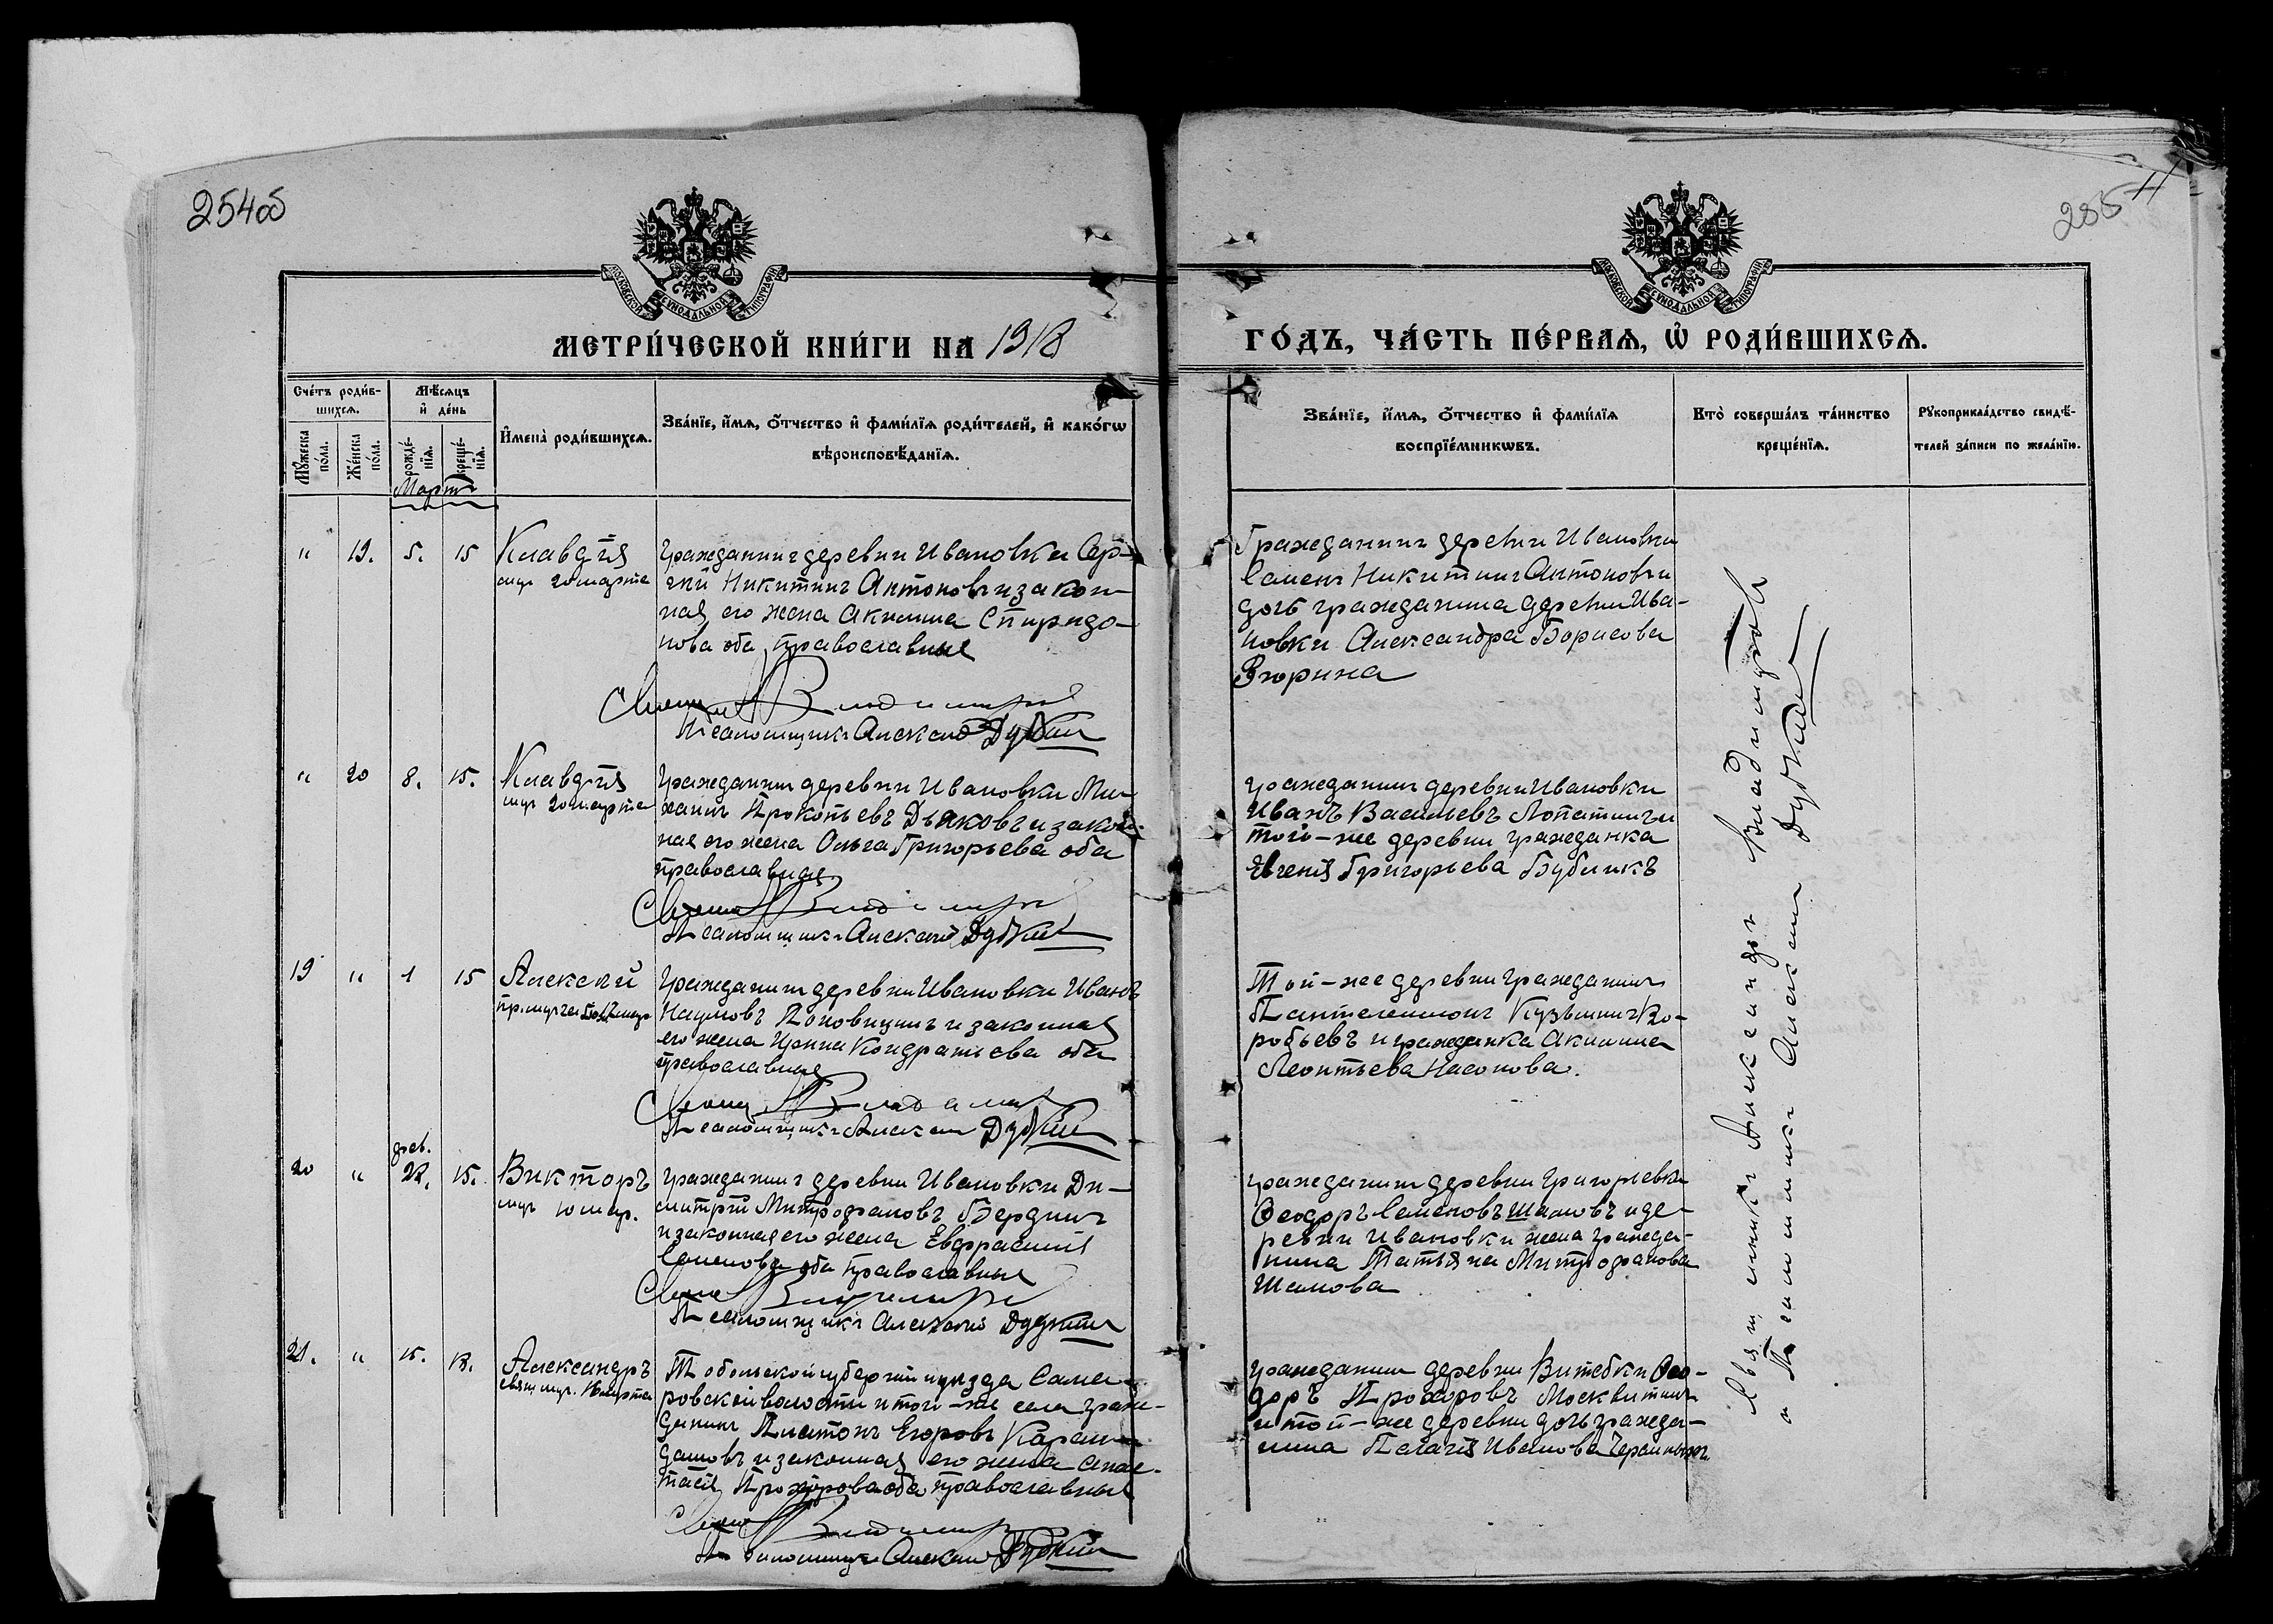 254об
255
МОСКОВСКОЙ СѴНОДАЛЬНОЙ ТИПОГРАФІИ
МОСКОВСКОЙ СѴНОДАЛЬНОЙ ТИПОГРАФІИ
МЕТРИ́ЧЕСКОЙ КНИ́ГИ НА 1918
ГО́ДЪ, ЧА́СТЬ ПЕ́РВАЯ, Ѡ҆ РОДИ́ВШИХСЯ.
Сче́тъ роди́в-
шихся.
Мѣ́сяцъ
и҆ де́нь
Му́жеска по́ла.
Же́нска по́ла.
рожде́-
нїя.
креще́-
нїя.
И҆мена̀ роди́вшихся.
Зва́нїе, и҆́мя, ѻ҆́тчество и҆ фами́лїя роди́телей, и҆ како́гѡ
вѣроисповѣ́данїя.
Зва́нїе, и҆́мя, ѻ҆́тчество и҆ фами́лїя
воспрїе́мникѡвъ.
Кто̀ соверша́лъ та́инство
креще́нїя.
Рꙋкоприкла́дство свидѣ́-
телей за́писи по жела́нїю.
Мартъ
" 19. 5. 15 Клавдія
мц. 20 марта
Гражданинъ деревни Ивановки Сер-
гій Никитинъ Антоновъ и закон-
ная его жена Акилина Спиридо-
нова оба православные
Священникъ А Владимировъ
Псаломщикъ Алексѣй Дудкин
Гражданинъ деревни Ивановки
Семенъ Никитинъ Антоновъ и
дочь гражданина деревни Ива-
новки Александра Борисова
Зюрина
" 20 8. 15. Клавдія
мц. 20 марта
Гражданинъ деревни Ивановки Ми-
хаилъ Прокопьевъ Дьяковъ и закон-
ная его жена Ольга Григорьева оба
православные
Священникъ А Владимировъ
Псаломщикъ Алексѣй Дудкин
Гражданинъ деревни Ивановки
Иванъ Васильевъ Лопатинъ и
той-же деревни гражданка
Евгенія Григорьева Бубликъ
19 " 1 15 Алексѣй
Гражданинъ деревни Ивановки Иванъ
Наумовъ Поповицинъ и законная
его жена Ирина Кондратьева оба
православные
Священникъ А Владимировъ
Псаломщикъ Алексѣй Дудкин
Той-же деревни гражданинъ
Пантелеимонъ Кузьминъ Во-
робьевъ и гражданка Акилина
Леонтьева Насонова.
фев.
20 " 22. 15. Викторъ
мц. 10 мар.
Гражданинъ деревни Ивановки Ди-
митрій Митрофановъ Бердинъ
и законная его жена Евфрасинія
Семенова оба православные
Священникъ А Владимировъ
Псаломщикъ Алексѣй Дудкин
Гражданинъ деревни Григорьевки
Ѳеодоръ Семеновъ Шамовъ и де-
ревни Ивановки жена гражда-
нина Татьяна Митрофанова
Шамова
21. " 15. 18. Александръ
Тобольской губерніи и уѣзда Сама-
ровской волости и того-же села граж-
данинъ Платонъ Егоровъ Каран-
дашовъ и законная его жена Анас-
тасія Прохорова оба православные
Священникъ А Владимировъ
Псаломщикъ Алексѣй Дудкин
Гражданинъ деревни Витебки Ѳео-
доръ Прохоровъ Москвитинъ
и той-же деревни дочь гражда-
нина Пелагія Иванова
Священникъ Александръ Владимировъ
и Псаломщикъ Алексѣй Дудкин